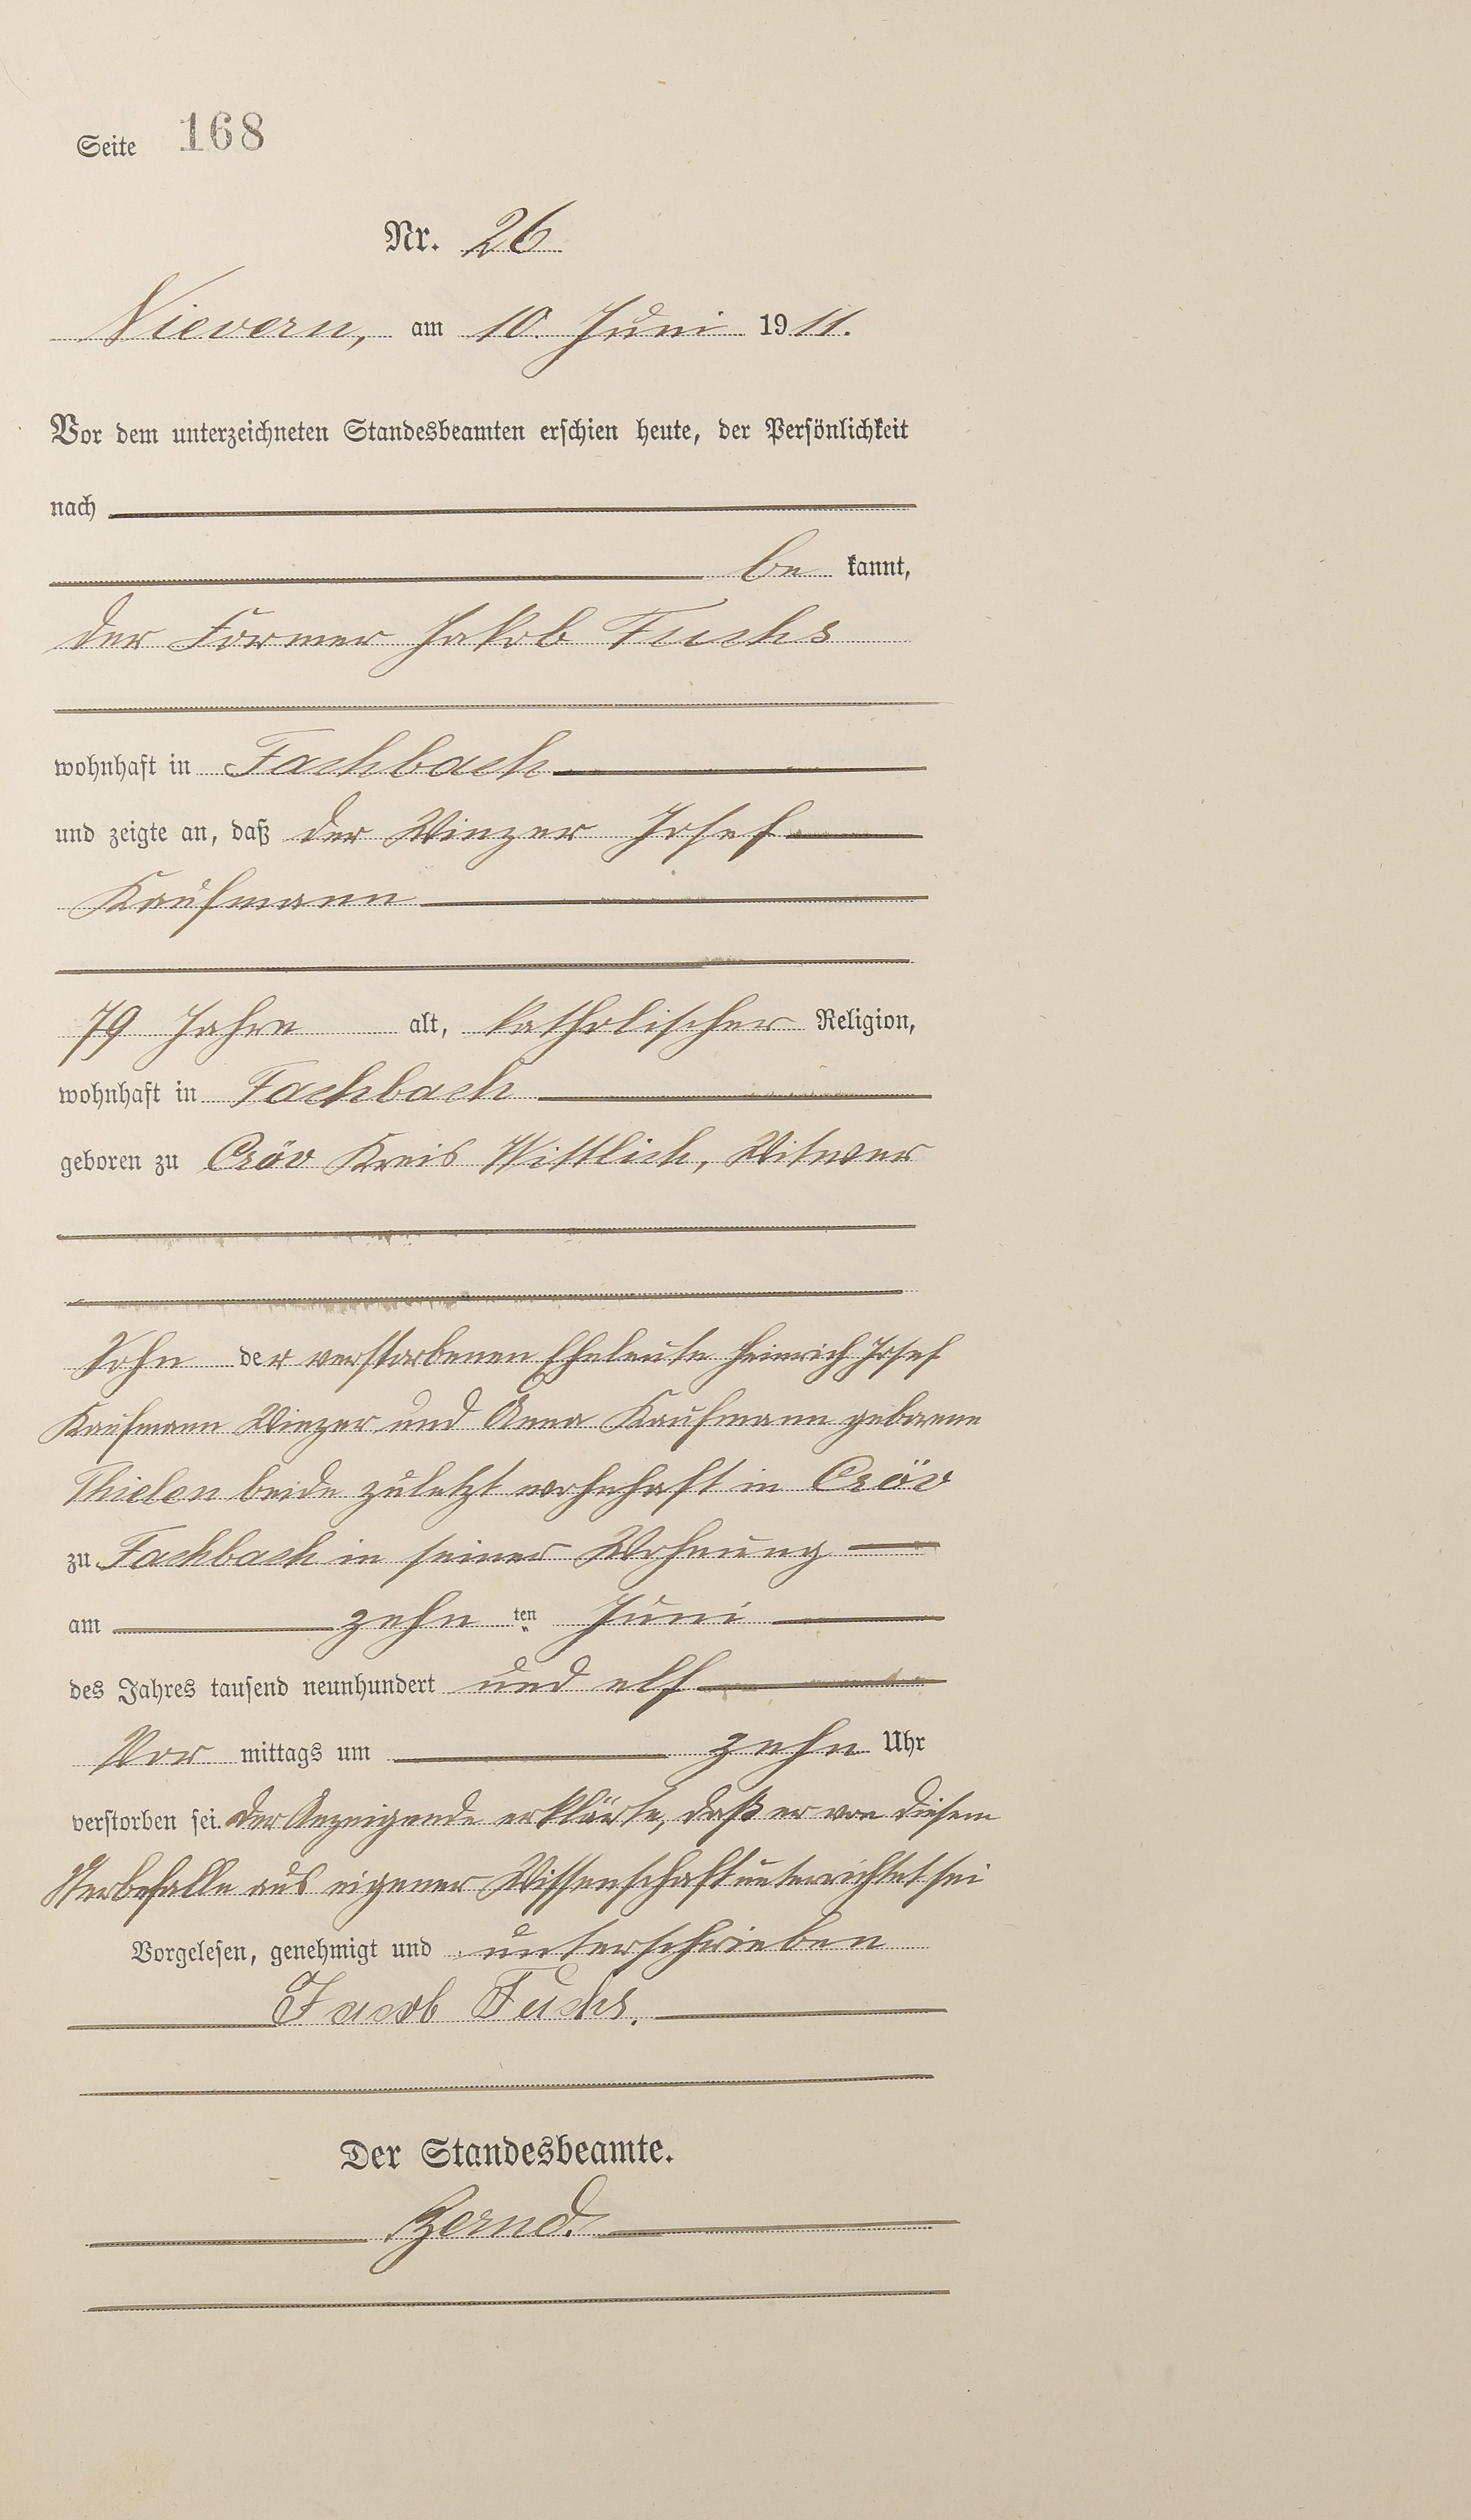 Seite 168
Nr. 26
Nievern, am 10. Juni 1911.
Vor dem unterzeichneten Standesbeamten erschien heute, der Persönlichkeit
nach
be kannt,
der Former Jakob Fuchs
wohnhaft in Fachbach
und zeigte an, daß der Winzer Josef
Kaufmann
79 Jahre alt, katholischer Religion,
wohnhaft in Fachbach
geboren zu Cröv Kreis Wittlich, Witwer
Sohn der verstorbenen Eheleute Heinrich Josef
Kaufmann Winzer und Anna Kaufmann geborene
Thielen beide zuletzt wohnhaft in Cröv
zu Fachbach in seiner Wohnung
am zehn ten Juni
des Jahres tausend neunhundert und elf
Vor mittags um zehn Uhr
verstorben sei. Der Anzeigende erklärte, daß er von diesem
Sterbefalle aus eigener Wissenschaft unterrichtet sei
Vorgelesen, genehmigt und unterschrieben
Jacob Fuchs.
Der Standesbeamte.